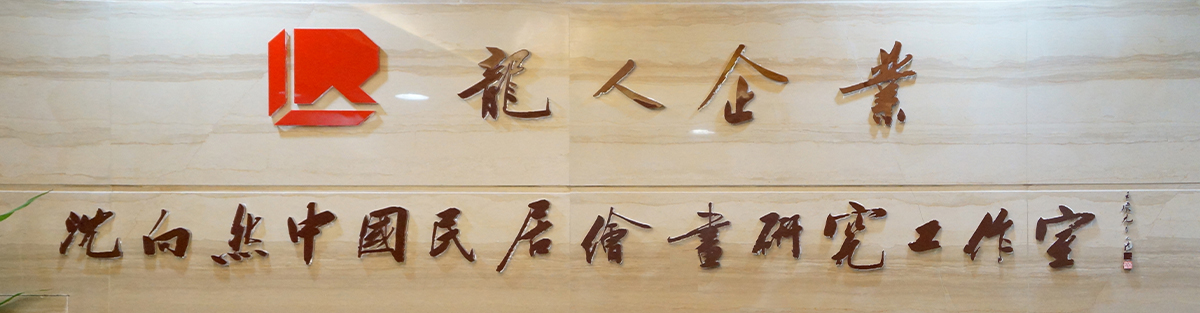 龍人企業
沈向然中國民居繪畫研究工作室